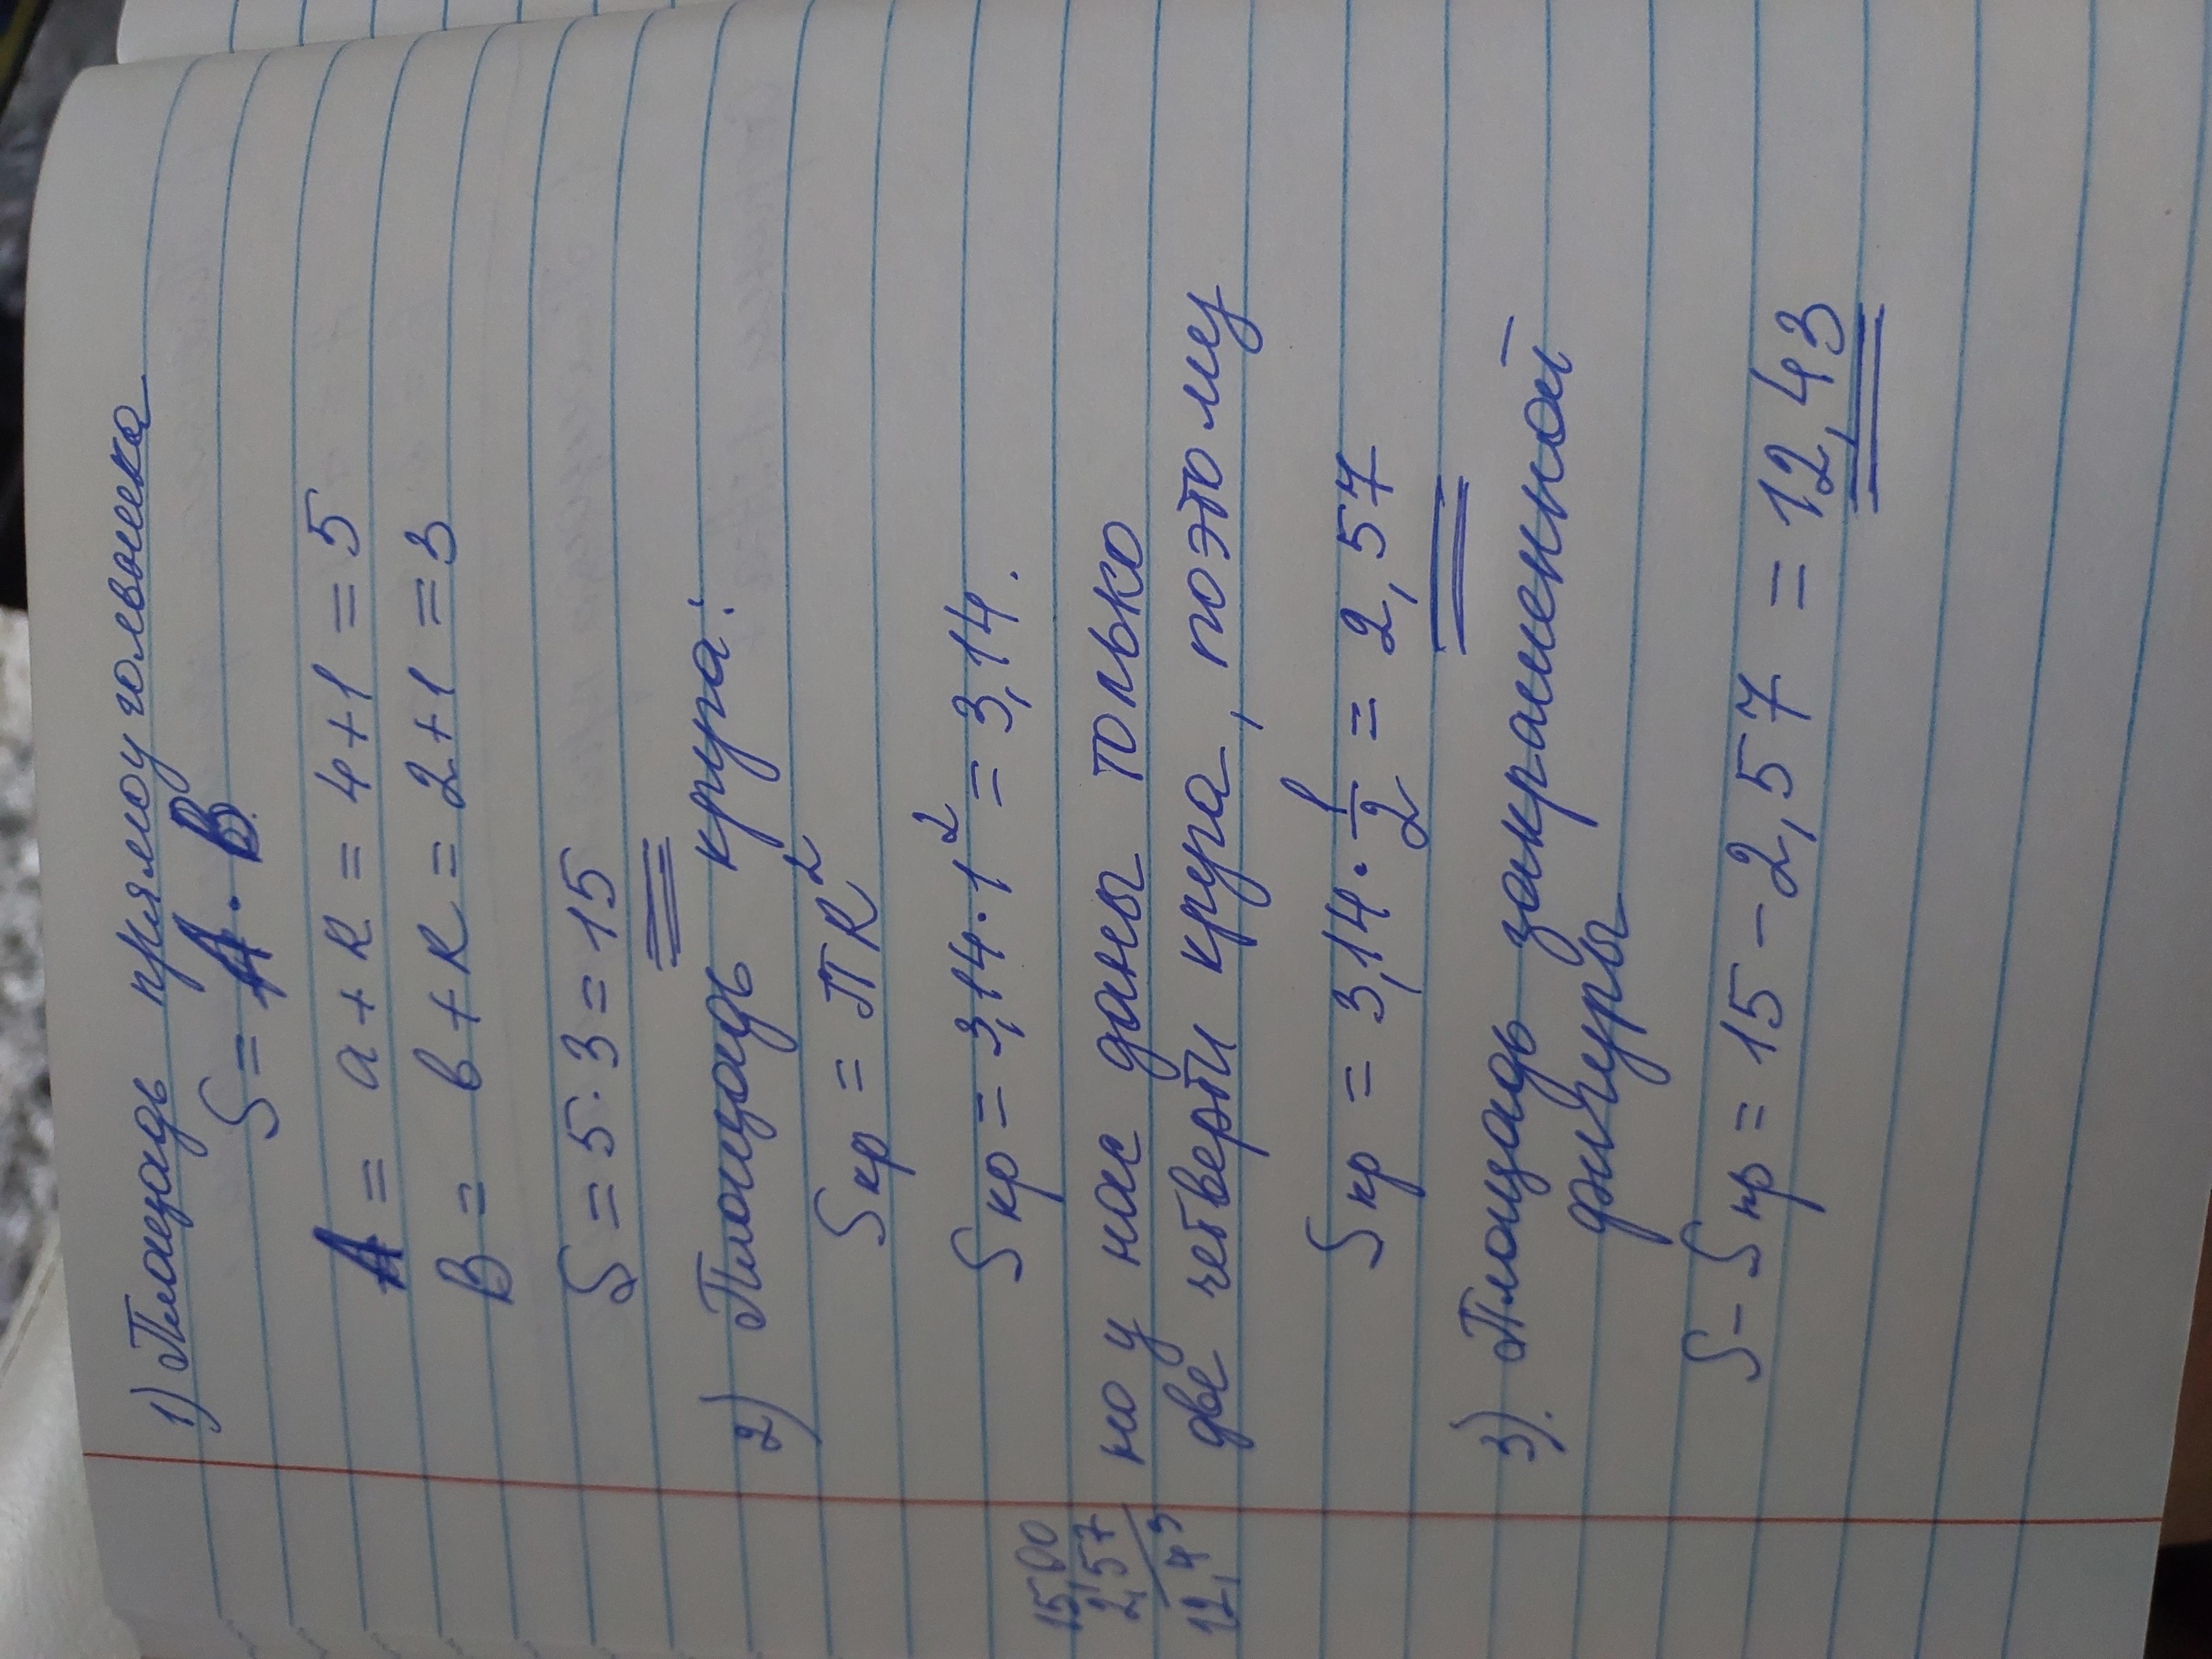 1) Площадь прямоугольника
S = A · B.
A = a + R = 4 + 1 = 5
B = в + R = 2 + 1 = 3
S = 5 · 3 = 15
2) Площадь круга:
Sкр = πR²
Sкр = 3,14 · 1² = 3,14.
но у нас даны только
две четверти круга, поэтому
Sкр = 3,14 · 1/2 = 2,57
3). Площадь закрашенной
фигуры
S - Sкр = 15 - 2,57 = 12,43
15,00
2,57
12,43